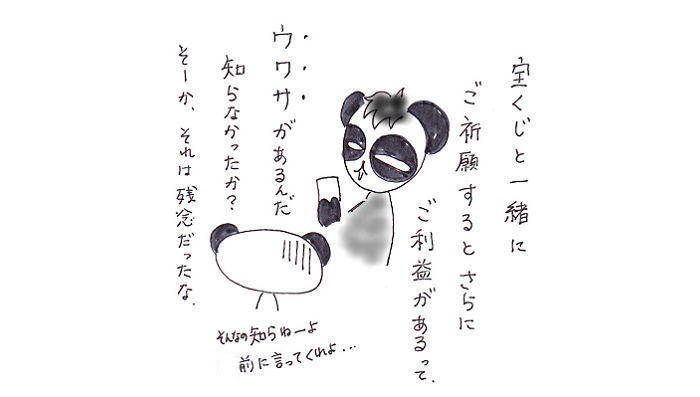 宝くじと一緒に
ご祈願するとさらに
ご利益があるって、
ウワサがあるんだ
知らなかったか？
そーか、それは残念だったな、
そんなの知らねーよ
前に言ってくれよ...